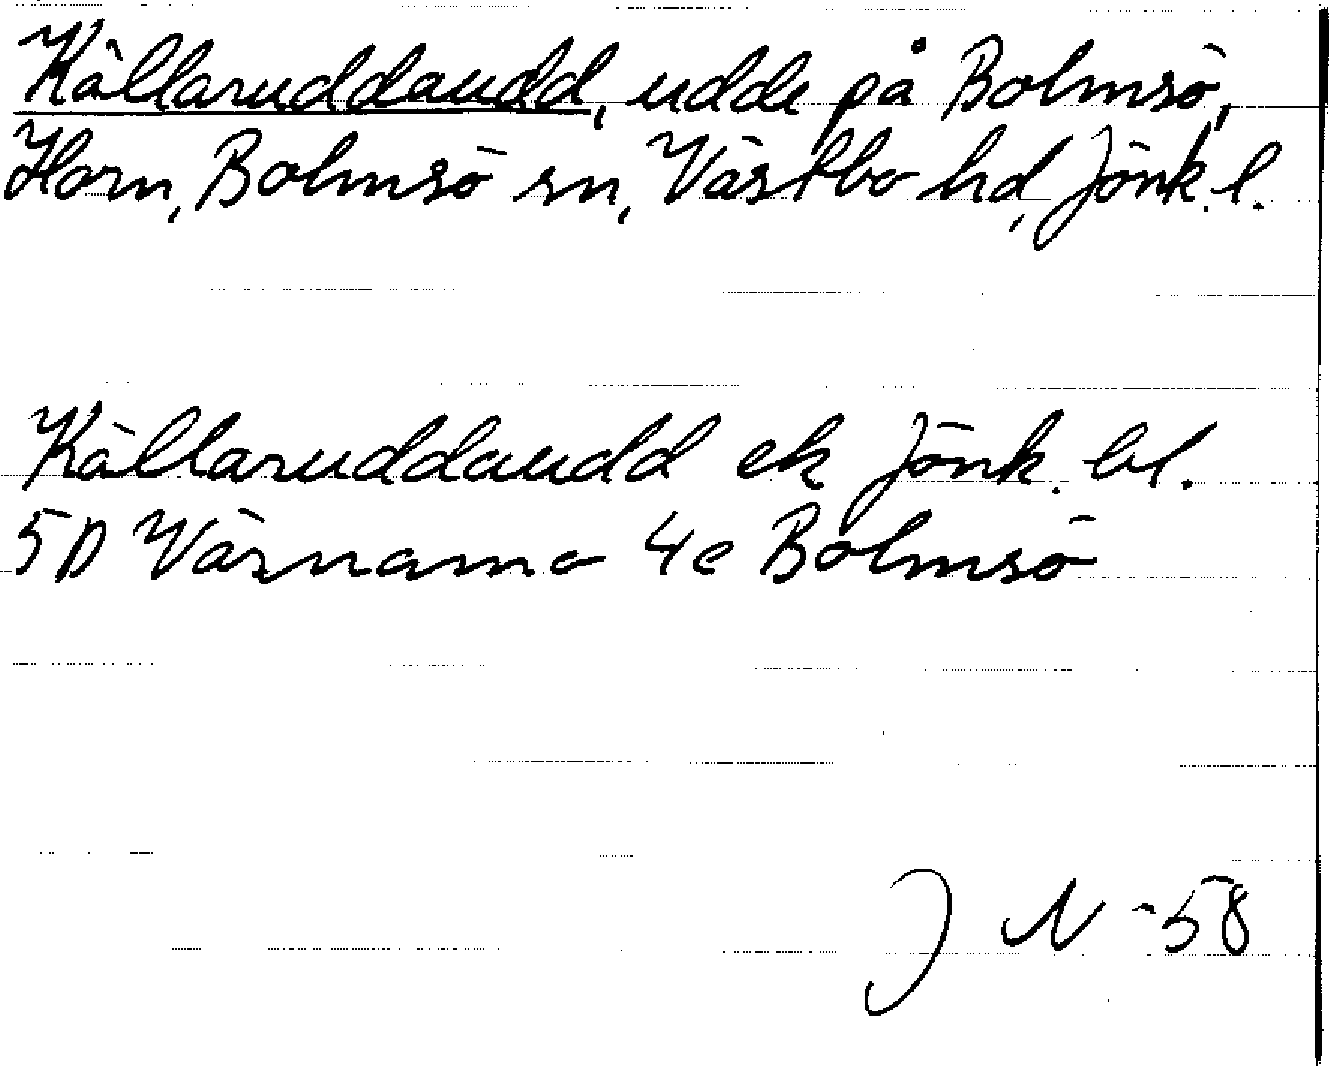 Källaruddaudd, udde på Bolmsö,
Horn, Bolmsö sn, Västbo hd, Jönk. l.
Källaruddaudd ek Jönk. bl.
5D Värnamo 4e Bolmsö
J N -58